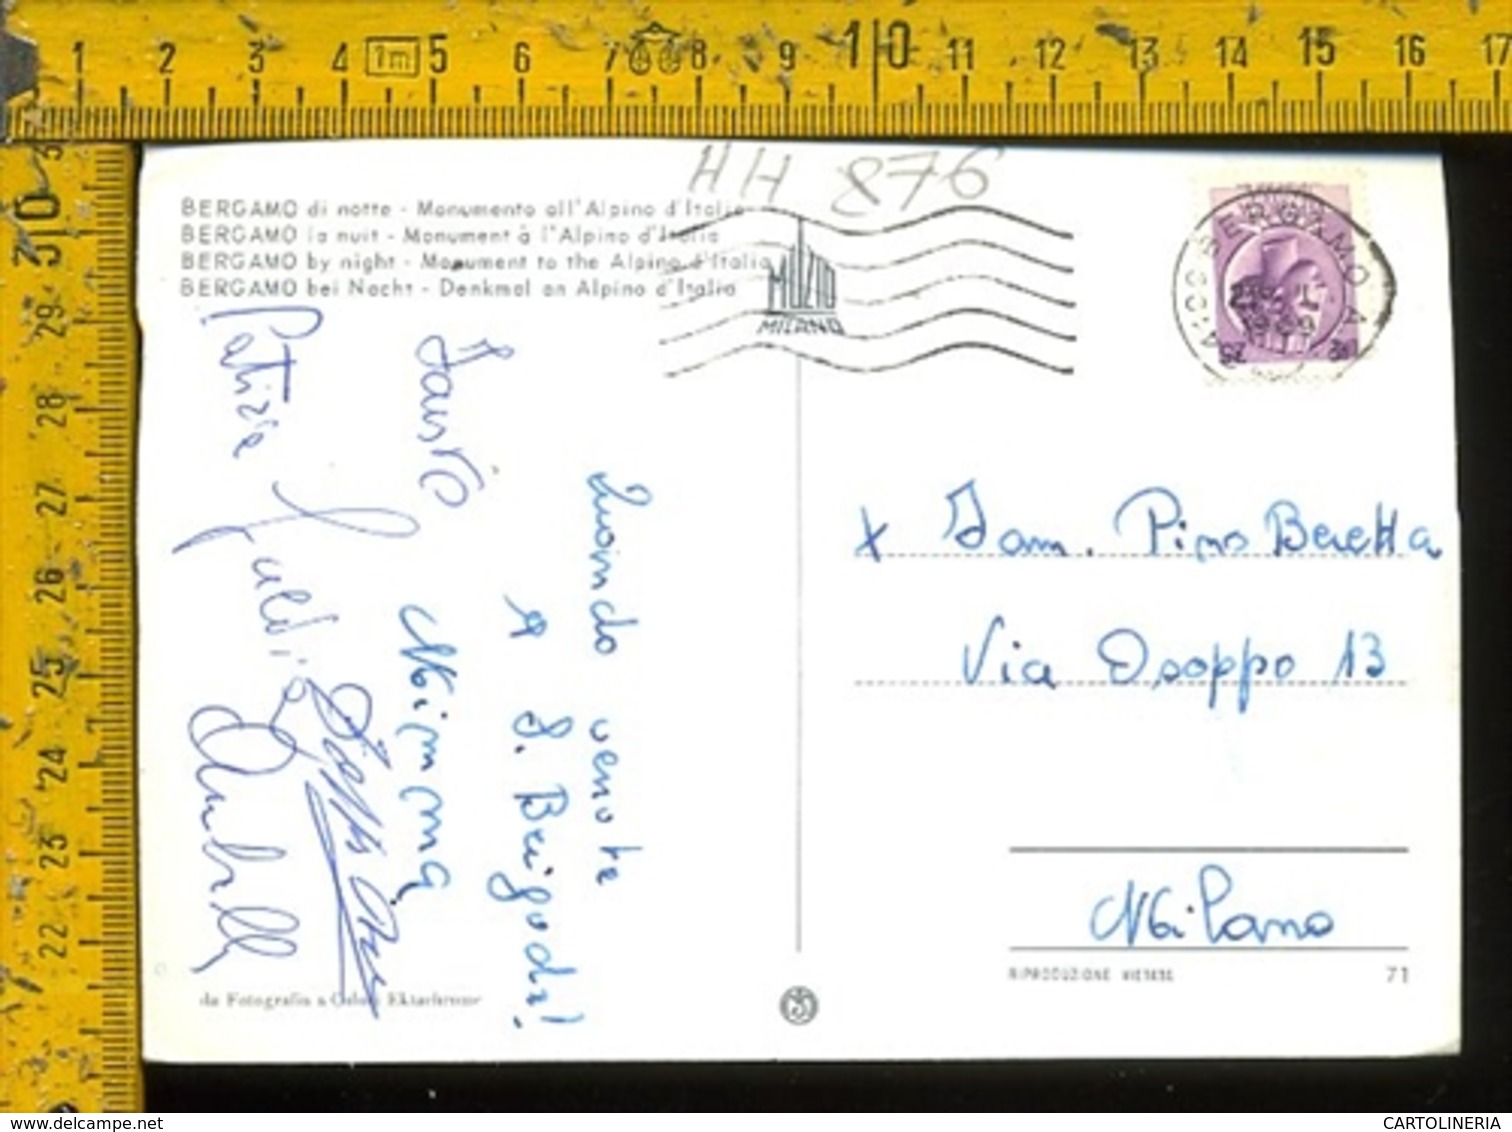 1 2 3 4 1m 5 6 7 8 9 10 11 12 13 14 15 16 17
HH 876
BERGAMO di notte - Monumento all'Alpino d'Italia
BERGAMO la nuit - Monument à l'Alpino d'Italia
BERGAMO by night - Monument to the Alpino d'Italia
BERGAMO bei Nacht - Denkmal an Alpino d'Italia
MUZIO
MILANO
24100 BERGAMO A
30 29 28 27 26 25 24 23 22
Quando venite
a S. Brigida!
Fausto Mimma
Patrizia
x Fam. Pino Beretta
Via Osoppo 13
Milano
RIPRODUZIONE VIETATA 71
da Fotografia a Colori Ektachrome
www.delcampe.net CARTOLINERIA